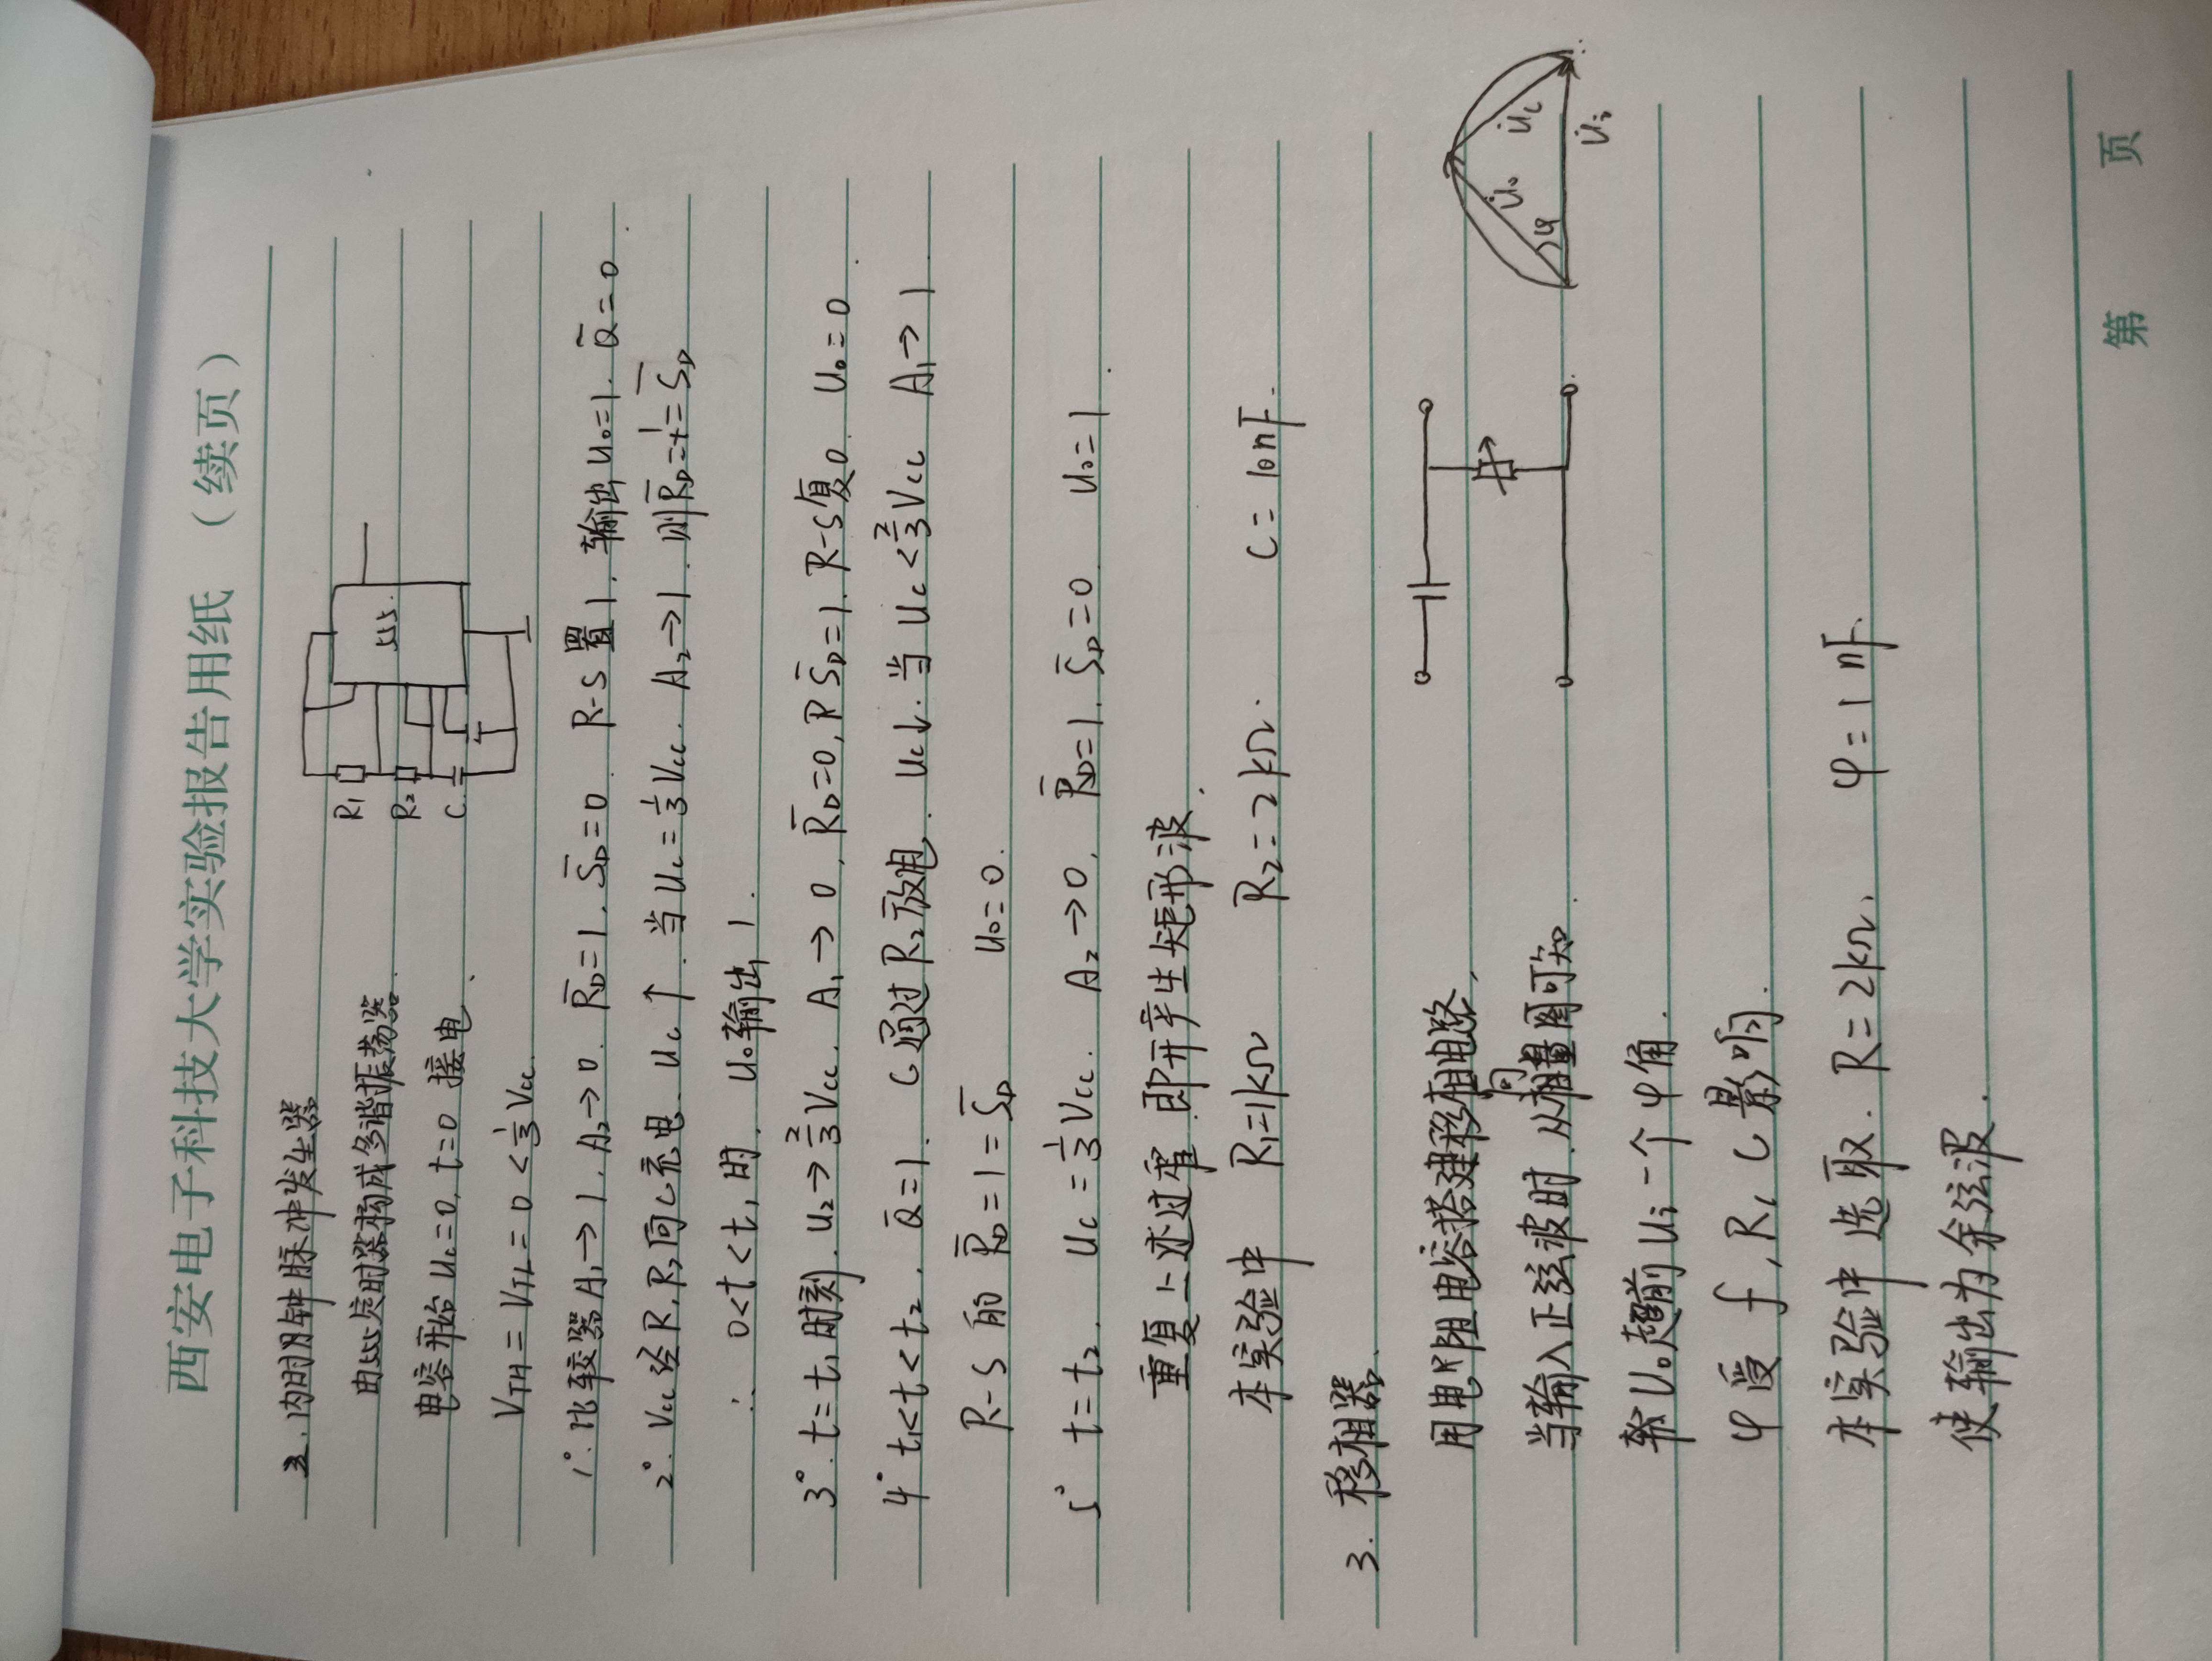 西安电子科技大学实验报告用纸 （续页）
2. 内时钟脉冲发生器
由555定时器构成多谐振荡器.
电容开始 Uc=0, t=0 接电.
VTH = VTL = 0 < 1/3 Vcc.
1°. 比较器A₁→1, A₂→0. R̅D=1, S̅D=0. R-S置1, 输出U₀=1. Q̅=0.
2°. Vcc 经R₁R₂向C充电. Uc↑. 当Uc=1/3 Vcc. A₂→1. 则R̅D=1=S̅D
∴ 0<t<t₁时. U₀输出1.
3°. t=t₁时刻. U₂→2/3 Vcc. A₁→0, R̅D=0, R S̅D=1. R-S复0. U₀=0.
4° t₁<t<t₂. Q̅=1. C通过R₂放电. Uc↓. 当Uc<2/3 Vcc A₁→1.
R-S的 R̅D=1=S̅D U₀=0.
5° t=t₂. Uc=1/3 Vcc. A₂→0, R̅D=1. S̅D=0. U₀=1.
重复上述过程.即开产生矩形波.
本实验中 R₁=1kΩ R₂=2kΩ. C=10nF.
3. 移相器.
用电阻电容搭建移相电路,
当输入正弦波时.从相向量图可知.
U₀超前Ui一个φ角.
φ受 f, R, C影响.
本实验中选取. R=2kΩ, φ=1nF.
使输出为余弦波.
R₁
R₂
C
555.
U̇₀
U̇c
φ
U̇i
第 页